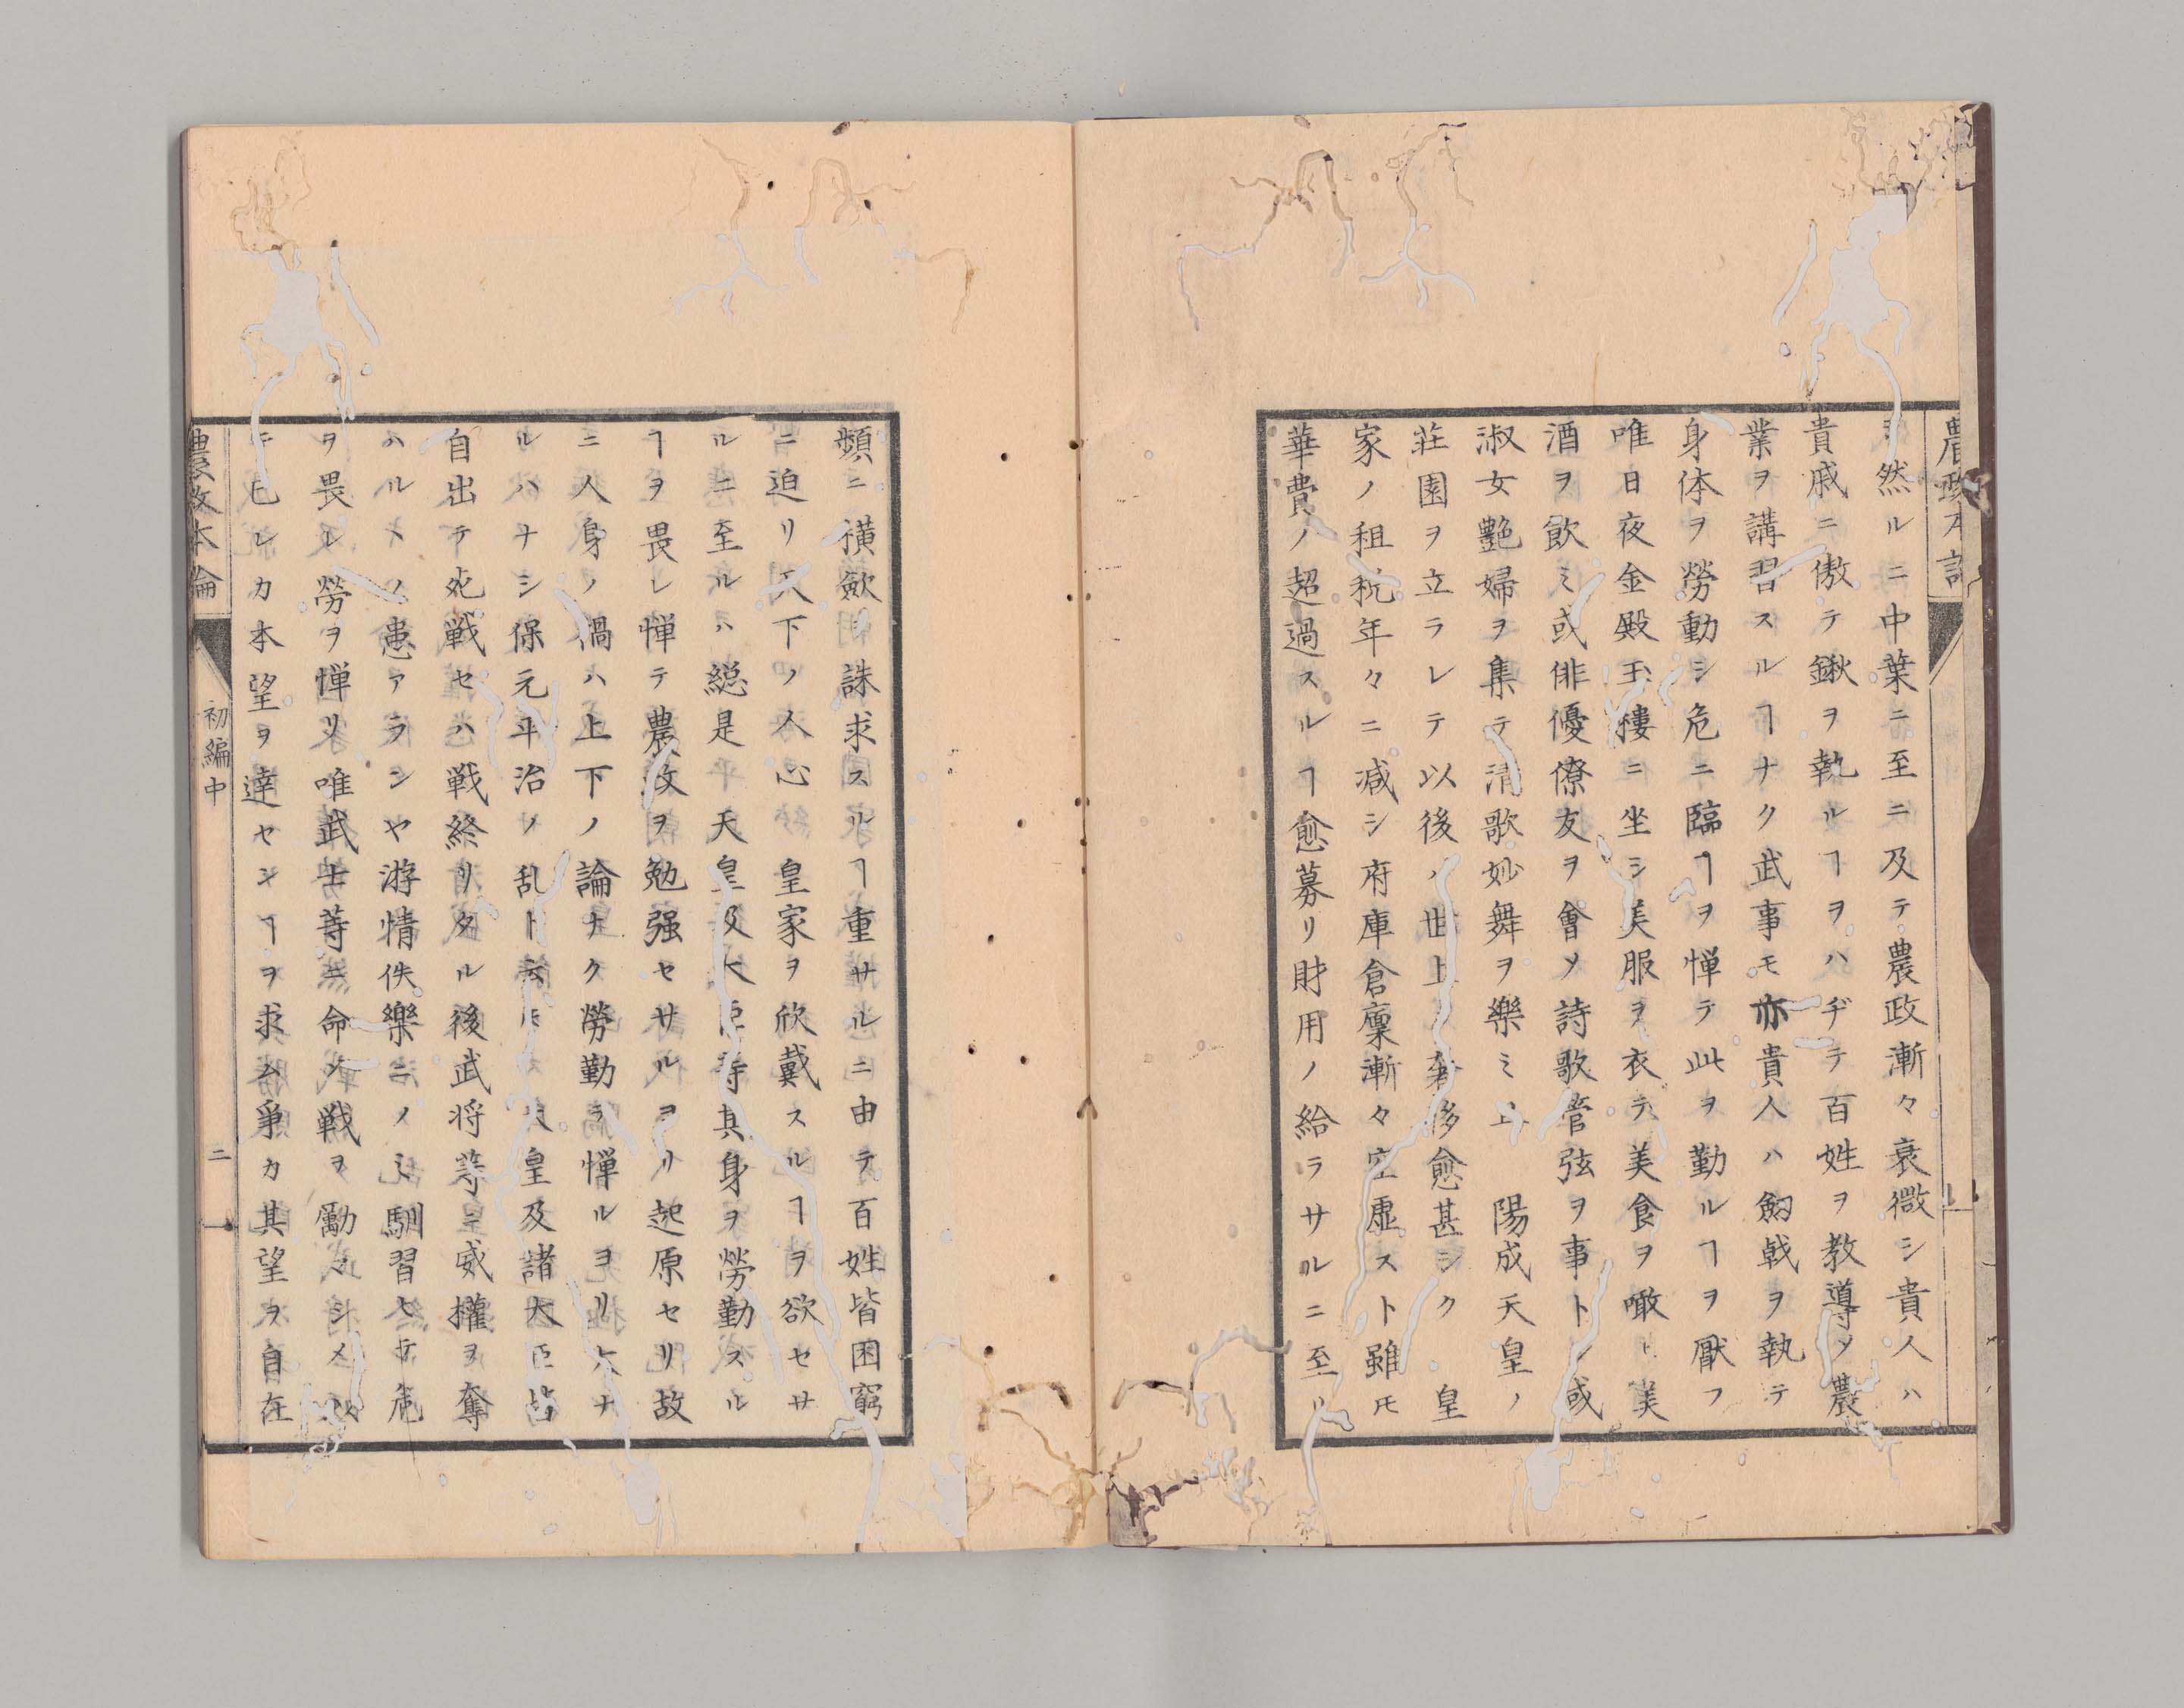 農政本論
然ルニ中葉ニ至ニ及テ農政漸々衰微シ貴人ハ
貴戚ニ傲テ鍬ヲ執ルヿヲハヂテ百姓ヲ教導メ農
業ヲ講習スルヿナク武事モ亦貴人ハ劔戟ヲ執テ
身体ヲ勞動シ危ニ臨ヿヲ憚テ此ヲ勤ルヿヲ厭フ
唯日夜金殿玉樓ニ坐シ美服ヲ衣テ美食ヲ噉ヒ美
酒ヲ飲ミ或俳優僚友ヲ會メ詩歌管弦ヲ事トシ或
淑女艶婦ヲ集テ清歌妙舞ヲ樂ミ 陽成天皇ノ
莊園ヲ立ラレテ以後ノ世上ノ奢侈愈甚シク 皇
家ノ租税年々ニ減シ府庫倉廩漸々空虚スト雖モ
華費ノ超過スルヿ愈募リ財用ノ給ラサルニ至リ
頻ニ横斂シ誅求スルヿ重サルニ由テ百姓皆困窮
ニ迫リ天下ノ人心 皇家ヲ欣戴スルヿヲ欲セサ
ルニ至ルハ総是平天皇及大臣等其身ヲ勞勤スル
ヿヲ畏レ憚テ農政ヲ勉强セサルヨリ起原セリ故
ニ人身ノ禍ハ上下ノ論ナク勞勤ヲ憚ルヨリ大ナ
ルハナシ保元平治ノ乱ト云トモ天皇及諸大臣皆
自出テ死戦セハ戦終リタル後武将等ニ威權ヲ奪
ハルヽノ患アランヤ游惰佚樂ニノミ馴習セテ危
ヲ畏レ勞ヲ憚リ唯武士等ニ命シ戦ヲ勵マシメ以
テ己レカ本望ヲ達セシヿヲ求ム爭カ其望ヲ自在
農政本論 初編中 二